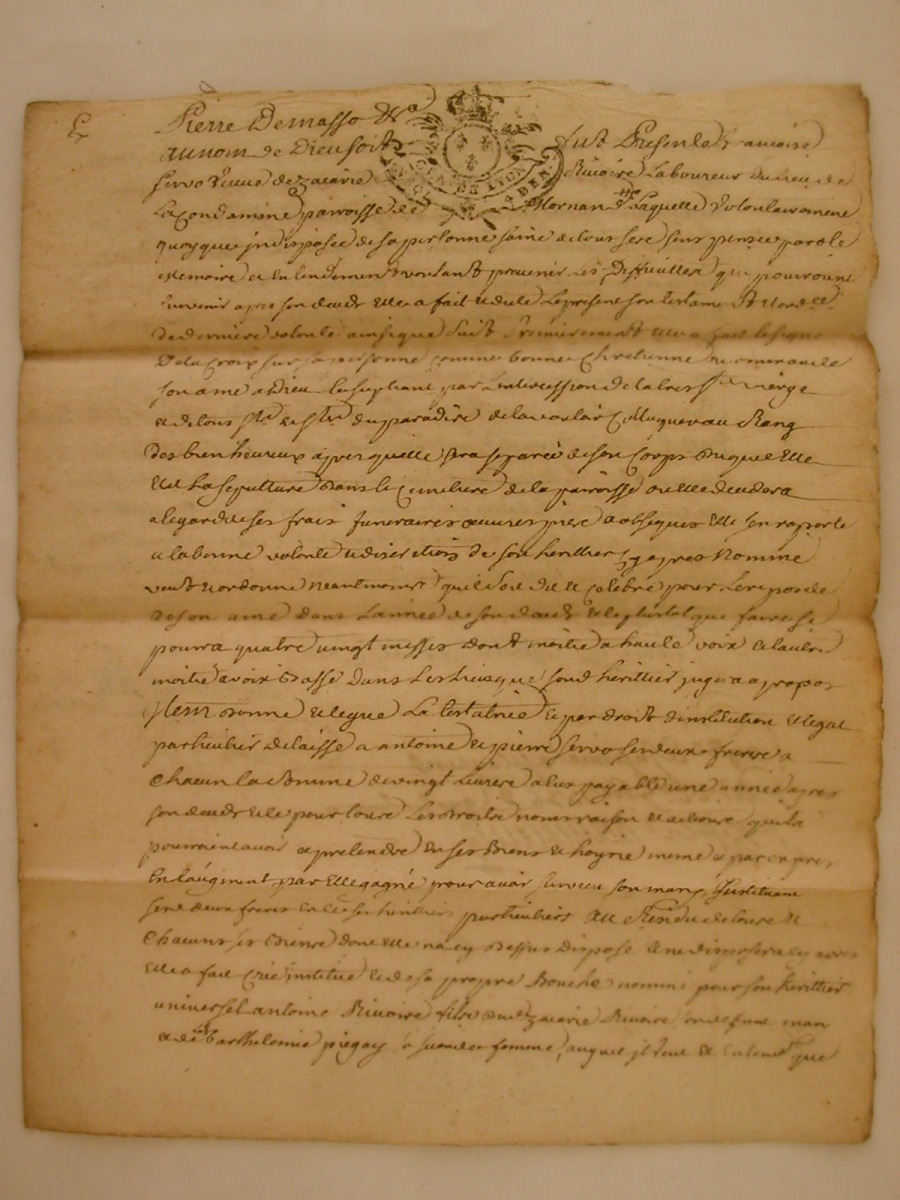 Pierre Demasso &c.a
au nom de Dieu soit fut Presente Francoise
servo veuve de zacarie Rivoire Laboureur du lieu de
La Condamine parroisse de Mornand Laquelle volontairement
quoyque indisposée de sa personne saine de tous ses sens pensée parole
memoire et entendement voulant prevenir Les Difficultes qui pourroient
survenir apres son deceds Elle a fait et dicte Le present son testament et ord.ce
de derniere volonté ainsi que suit Premierement elle a fait le signe
De la Croix sur sa personne comme bonne Chretienne recommande
son ame a Dieu Le supliant par L intercession de la tres S.te vierge
et de tous S.ts et S.tes du paradis de la vouloir Colloquer au Rang
des bien heureux apres quelle sera separée de son Corps duquel Elle
Elit La sepulture dans le Cimetiere de la parroisse ou elle decedera
a legard de ses frais funeraires oeuvres pies et obseques Elle sen raporte
a la bonne volonté et discretion de son heritier cy apres Nommé
veut et ordonne neantmoins quil soit dit et celebré pour Le repos de
de son ame dans Lannée de son deceds et le plustot que faire se
pourra quatre vingt messes dont moitié a haute voix et lautre
moitié a voix Basse dans Les lieux que sond heritier jugera a propos
Item Donne et legue La testatrice et par droit dinstitution et legat
particulier delaisse a antoine et pierre servo ses deux freres a
Chacun la somme de vingt Livres a eux payable une année apres
son deceds et ce pour tous Les Droits noms raison et actions quils
pourroient avoir et pretendre en ses Biens et hoyrie meme
En Laugment par Elle gagné pour avoir survecu son mary Instituant
sesd deux freres ses heritiers particuliers au Residu de tous et
Chacuns ses Biens dont elle na cy Dessus disposé
Elle a fait Créé institué et de sa propre Bouche nommé pour son heritier
universel antoine Rivoire fils dud zacarie Rivoire son defunt mary
et de Barthelemie piegay sa seconde femme, auquel il veut et entend que